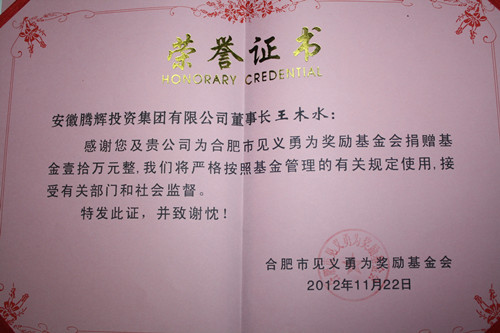 荣誉证书
HONORARY CREDENTIAL
安徽腾辉投资集团有限公司董事长王木水：
感谢您及贵公司为合肥市见义勇为奖励基金会捐赠基
金壹拾万元整,我们将严格按照基金管理的有关规定使用,接
受有关部门和社会监督。
特发此证，并致谢忱！
合肥市见义勇为奖励基金会
2012年11月22日